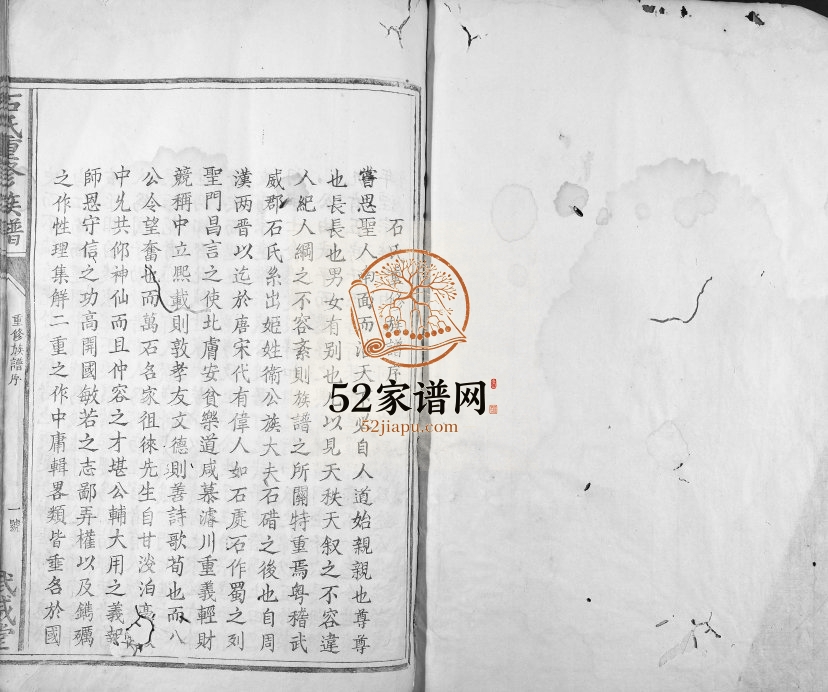 石氏重修族譜序
嘗思聖人南面而天必自人道始親親也尊尊
也長長也男女有别也以見天秩天叙之不容違
人紀人綱之不容紊則族譜之所關特重焉粤稽武
威郡石氏糸出姬姓衛公族大夫石碏之後也自周
漢两晋以迄於唐宋代有偉人如石處石作蜀之列
聖門昌言之使北膚安貧樂道咸慕濬川重義輕財
競稱中立熙載則敦孝友文德則善詩歌荀也而八
公令望奮也而萬石名家徂徠先生自甘淡泊
中㕥共仰神仙而且仲容之才堪公輔大用之義
師恩守信之功高開國敏若之志鄙弄權以及鐫礪
之作性理集解二重之作中庸輯畧類皆垂名於國
石氏重修族譜
重修族譜序
一號
武威堂
52家谱网
52jiapu.com